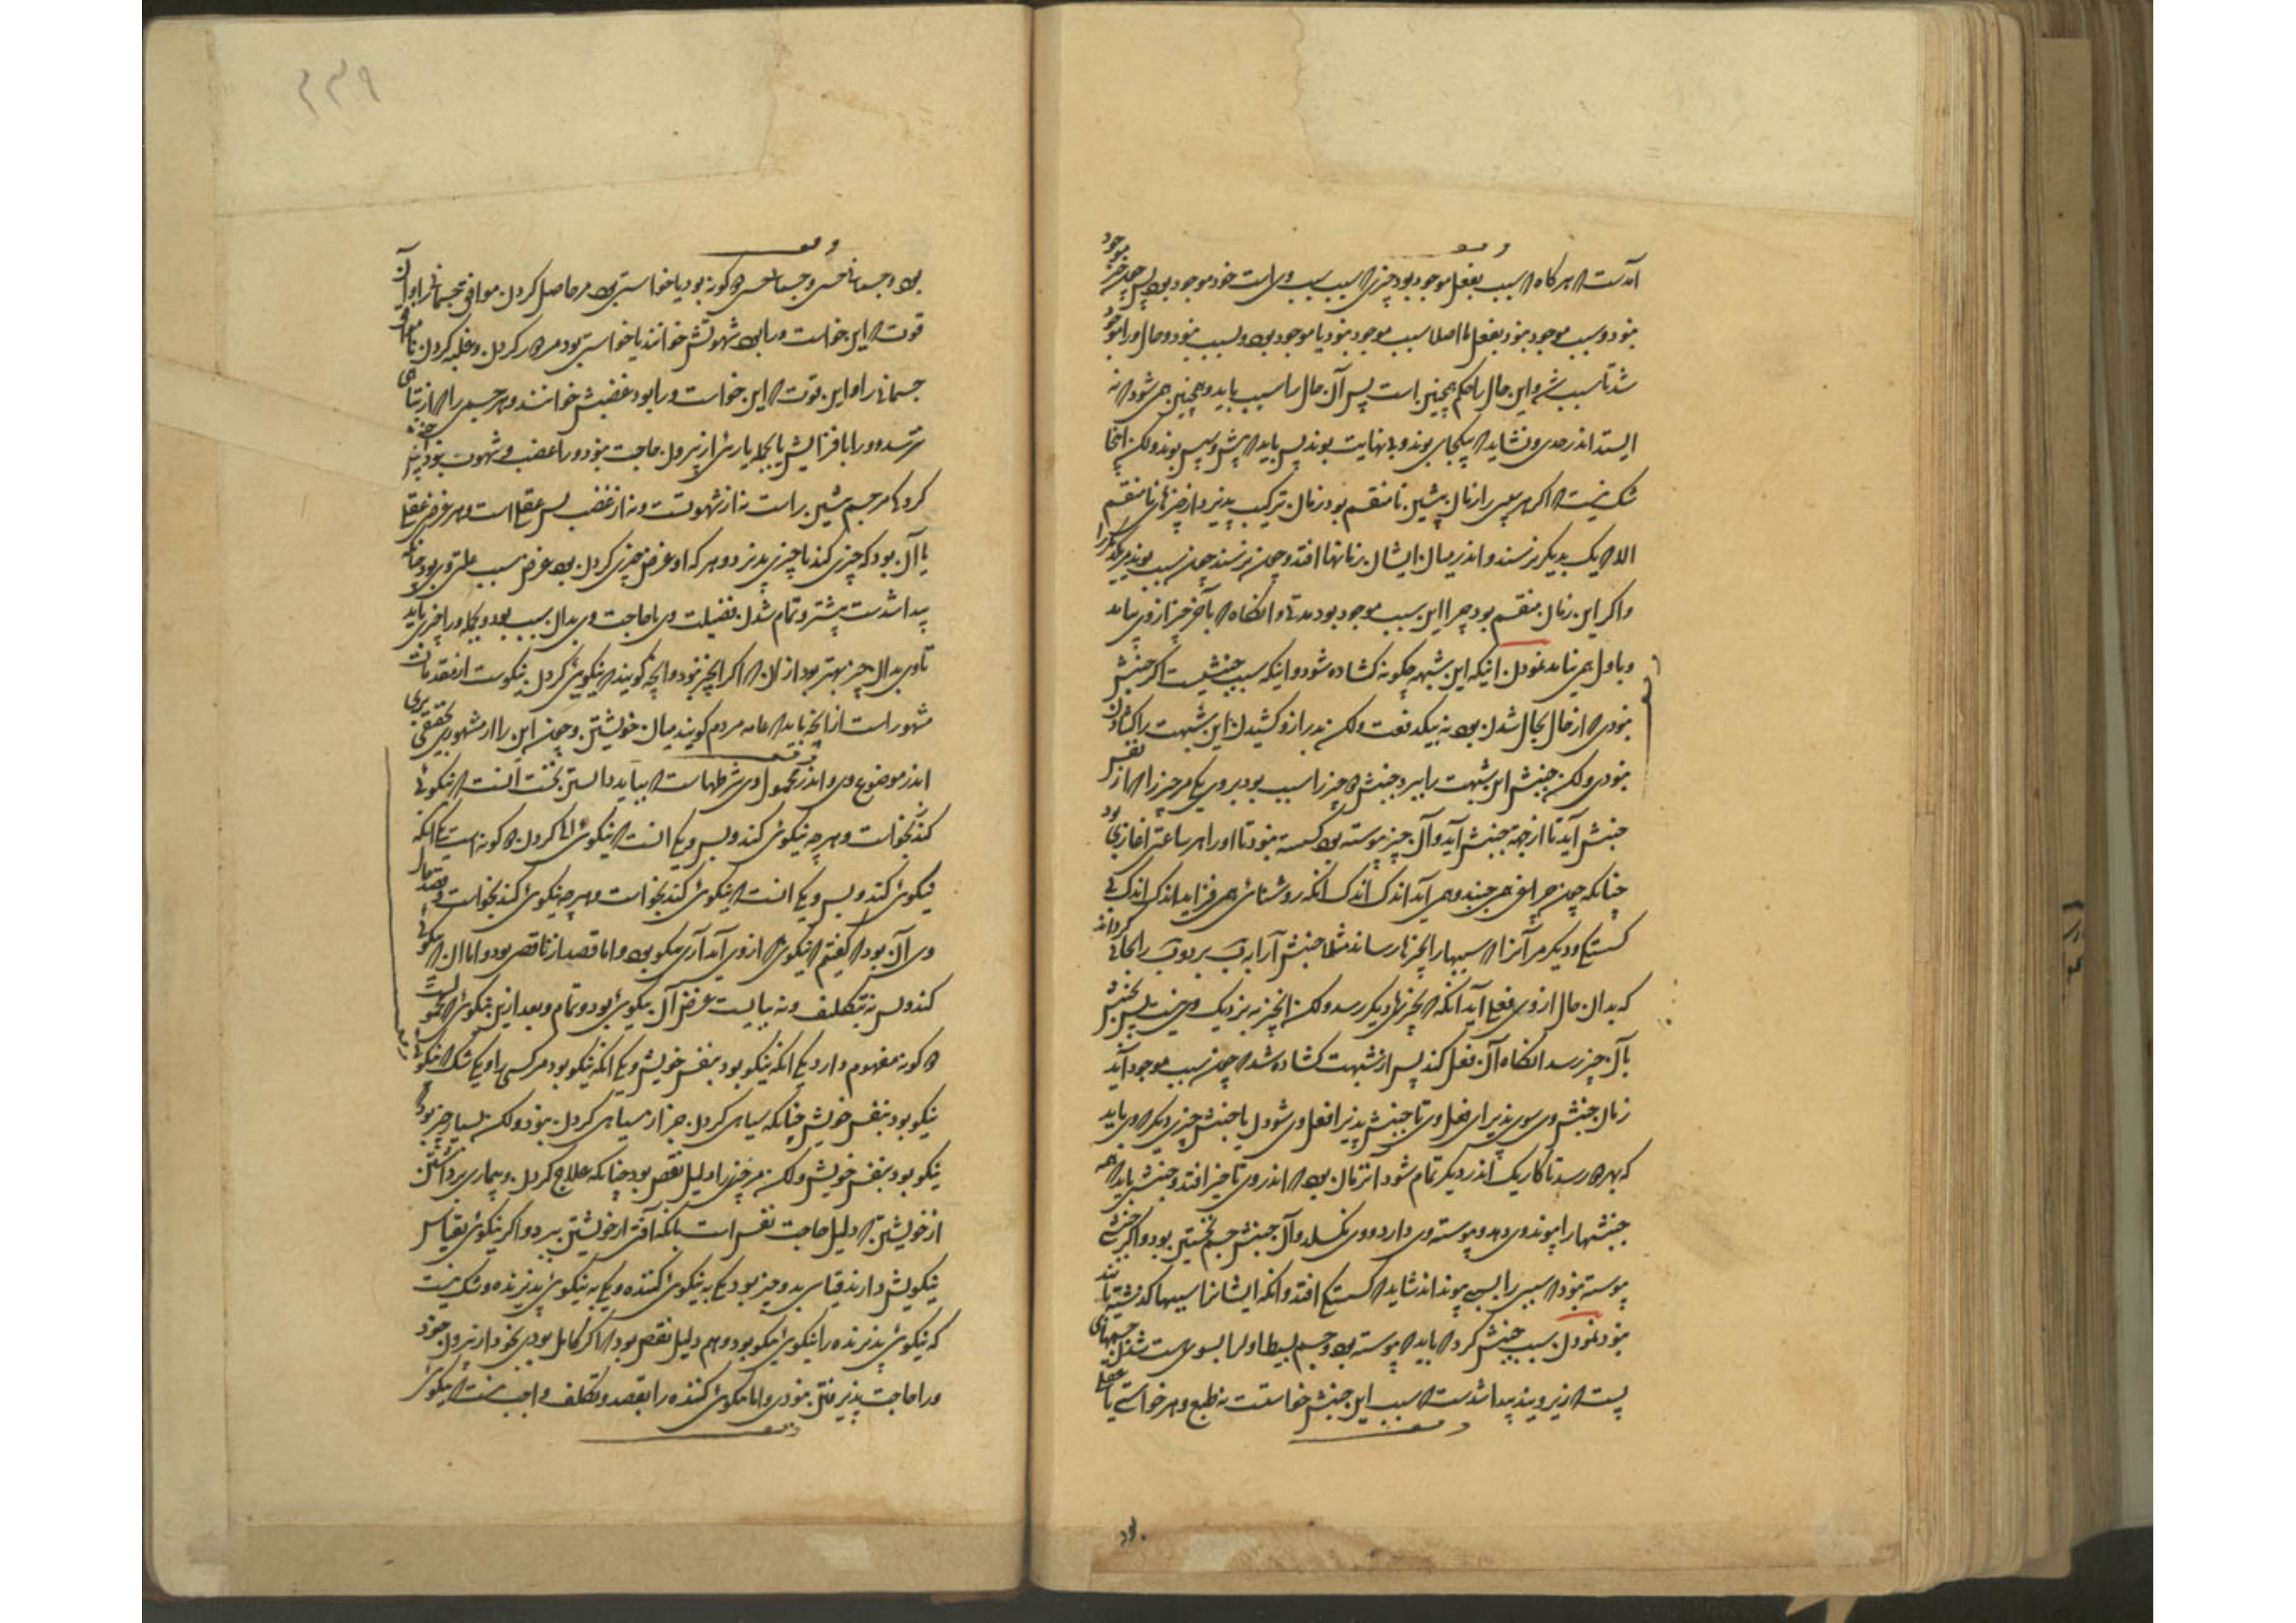 آنست که هرگاه که سبب بفعل موجود بود چیزی که سبب سبب وی است خود موجود بود پس چون چیز موجود
نبود و سبب موجود نبود بفعل یا اصلا سبب موجود نبود یا موجود بود و سبب نبود و حال او را نو
شد تا سبب شد و این حال را حکم همچنین است پس آن حال را سبب باید و همچنین همی شود که نه
ایستد اندر حدی و نشاید که بیکجای بوند و بی نهایت بوند پس باید که پیش و سپس بوند ولکن اینجا
شک نیست که اگر هر سببی را زمان پیشین نامنقسم بود زمان ترکیب پذیرد از چیزهای نامنقسم
الا که یک بدیگر نرسند و اندر میان ایشان زمانها افتد و چون نرسند چون سبب بوند مر یکدیگر را
و اگر این زمان منقسم بود چرا این سبب موجود بود مدتی و آنگاه که بآخر چیز از وی بیامد
نمودن اینکه این شبهه چگونه گشاده شود و اینکه سبب جنبشیست اگر جنبش
نبودی که از حال بحال شدن بود نه بیکدفعت ولکن بدرازو کشیدن این شبهت را گشادن
نبودی ولکن جنبش این شبهت را ببرد و جنبش چیز را سبب بود بدو روی یکی مر چیز را که از نفس
جنبش آید تا از جهة جنبش آید و آن چیز پیوسته بود گسسته نبود تا او را هر ساعتی آغازی بود
چنانکه چون چراغی همی جنبد و همی آید اندک اندک آنگه روشنائی همی فزاید اندک اندک بی
گسستگی و دیگر مر آنرا که سببها را بچیزها رساند مثلا جنبش آرد
که بدان حال از وی فعل آید آنگه که بچیزهای دیگر رسد ولکن آن چیز نه نزدیک وی نیست پس بجنبش
بآن چیز رسد آنگاه آن فعل کند پس از شبهت گشاده شد که چون سبب موجود آید
زمان جنبش وی سوی پذیرای فعل وی تا جنبش پذیرا فعل وی شودن یا جنبش چیزی دیگر که می باید
که بهر دو رسد تا کار یک اندر دیگر تمام شود آن زمان بود که اندر وی تاخیر افتد و جنبشی باید که همه
جنبشها را پیوند وی دهد و پیوسته وی دارد و وی نگسلد و آن جنبش جسم نخستین بود و اگر جنبشی
پیوسته نبود که سببی را بسببی پیوند اند نشاید که گسستگی افتد و آنگه ایشان را سببها گذشته باشد
نمودن سبب جنبش گرد که باید که پیوسته بود و جسم بسیط اول بسوی چیست
پست که از زیر وی‌اند پیدا شدست که سبب این جنبش خواستست نه طبع و هر خواستی یا عقلی
بود و جسمانی حسی و جسمانی حسی دو گونه بود یا خواستی بود مر حاصل کردن موافق جسمانی را و آن
قوت که این خواست ورا بود شهوتش خوانند یا خواستی بود مر دور کردن و غلبه کردن ناموافق
جسمانی را و این قوت که این خواست ورا بود غضبش خوانند و هر جسمی را که از تباهی
نترسد و ورا بافزایش یا بجمله یاری از بیرون حاجت نبود ورا غضب و شهوت نبود پس
گرد که مر جسم پیشین راست نه از شهوتست و نه از غضب پس عقلی است و هر غرضی عقلی
یا آن بود که چیزی کند یا چیزی پذیرد و هر که او غرض چیزی کردن بود غرض سبب علتی وی بود چنانکه
پیدا شدست پیشتر و تمام شدن فضیلت وی یا حاجت وی بدان سبب بود و بجمله ورا چیزی باید
تا وی بدان چیز بهتر بود از آن که اگر آن چیز نبود و آنچه گویند که نیکویی کردن نیکوست از مقدمات
مشهور است از آنچه باید که عامه مردم گویند میان خویشتن و چون این را از مشهوری بحقیقی بری
اندر موضوع وی و اندر محمول وی شرطهاست که بباید دانستن نخست آنست که نیکوئی
کند بخواست و هر چه نیکوئی کند و بس و یکی آنست که نیکوئی کردن دو گونه است یکی آنکه
نیکوئی کند و بس و یکی آنست که نیکوئی کند بخواست و هر چه نیکوئی کند بخواست و قصد حال
وی آن بود که گفتیم که نیکوئی که از وی آید آری نیکو بود و اما قصد از ناقص بود و اما آن که نیکوئی
کند و بس نه بتکلف و نه ببایست غرض آن نیکوئی بود و تمام و بعد ازین نیکوئی که
دو گونه مفهوم دارد یکی آنکه نیکو بود بنفس خویش و یکی آنکه نیکو بود مر کسی را و یکی شک که نیکوئی
نیکو بود بنفس خویش چنانکه سیاهی کردن جز از سیاهی کردن نبود ولکن بسیار چیز بود که
نیکو بود بنفس خویش ولکن مر چیزی را دلیل نقص بود چنانکه علاج کردن و بیماری برداشتن
از خویشتن که دلیل حاجت نفس است بلکه آفتی از خویشتن ببرد و اگر نیکوئی بقیاس
نیکوئیش دارند قیاس بدو چیز بود یکی به نیکوئی کننده و یکی به نیکوئی پذیرنده و شک نیست
که نیکوئی پذیرنده را نیکوئی نیکو بود و هم دلیل نقص بود که اگر کامل بودی بخود از بیرون خود
ورا حاجت پذیرفتن نبودی و اما نیکوئی کننده را بقصد و تکلف واجب نیست که نیکوئی